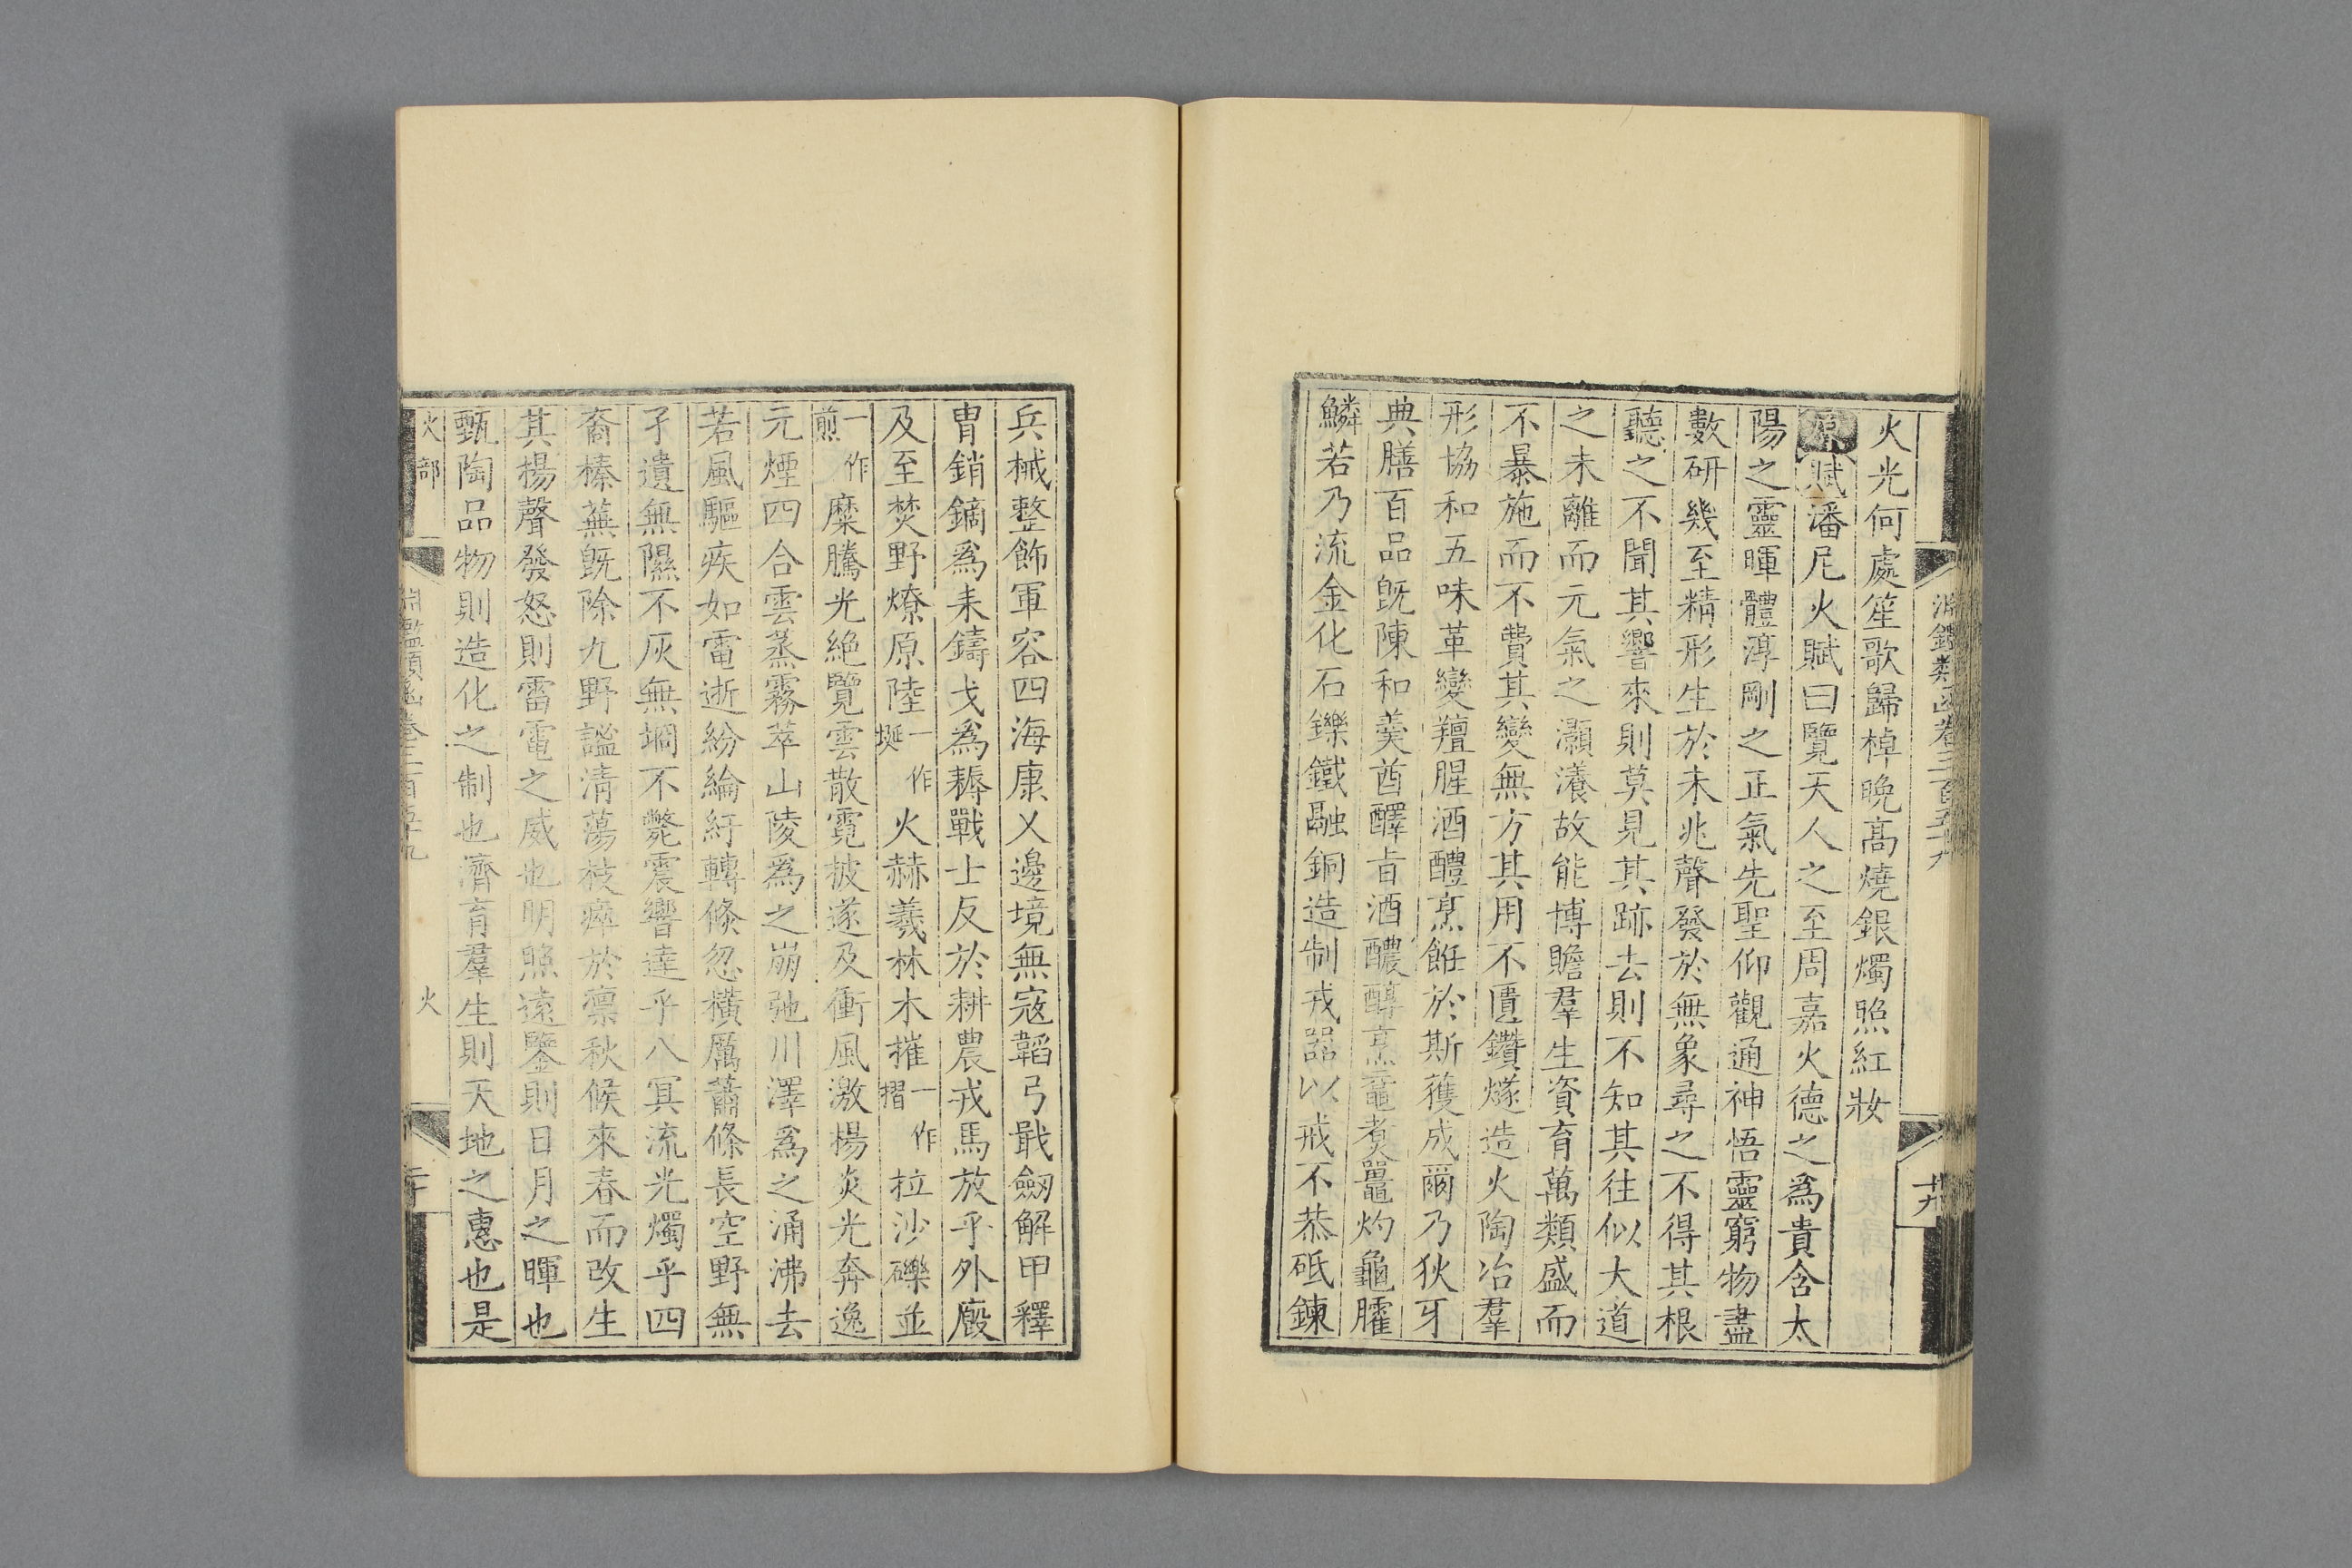 淵鑑類函卷三百五十九
十九
火光何處笙歌歸棹晚高燒銀燭照紅妝
原賦潘尼火賦曰覽天人之至周嘉火德之爲貴含太
陽之靈暉體淳剛之正氣先聖仰觀通神悟靈窮物盡
數研幾至精形生於未兆聲發於無象尋之不得其根
聽之不聞其響來則莫見其跡去則不知其往似大道
之未離而元氣之灝瀁故能博贍羣生資育萬類盛而
不暴施而不費其變無方其用不匱鑽燧造火陶冶羣
形協和五味革變羶腥酒醴烹飪於斯獲成爾乃狄牙
典膳百品旣陳和羹酋醳旨酒醲醇烹黿煮鼉灼龜臛
鱗若乃流金化石鑠鐵融銅造制戎器以戒不恭砥鍊
兵械整飾軍容四海康乂邊境無寇韜弓戢劔解甲釋
胄銷鏑爲耒鑄戈爲耨戰士反於耕農戎馬放乎外廄
及至焚野燎原陸一作埏火赫羲林木摧一作摺拉沙礫並
一作煎糜騰光絶覽雲散霓披遂及衝風激楊炎光奔逸
元煙四合雲蒸霧萃山陵爲之崩弛川澤爲之涌沸去
若風驅疾如電逝紛綸紆轉倏忽橫厲蕭條長空野無
孑遺無隰不灰無坰不斃震響達乎八冥流光燭乎四
裔榛蕪旣除九野謐淸蕩枝瘁於凛秋候來春而改生
其揚聲發怒則雷電之威也明照遠鑒則日月之暉也
甄陶品物則造化之制也濟育羣生則天地之惠也是
火部
淵鑑類函卷三百五十九
火
二十